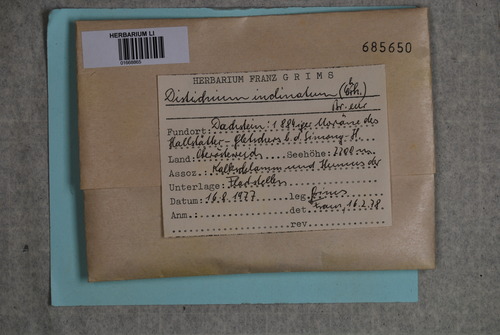 HERBARIUM LI
685650
HERBARIUM FRANZ GRIMS
Distichium inclinatum (Eh.)
Br. eur
Fundort: Dachstein: 188ziger Moräne des
Hallstätter-Gletschers b. d. Simony-H.
Land: Oberösterreich Seehöhe: 2200 m
Assoz.: Kalkschlamm und Humus der
Unterlage:
Datum: 16.8.1977 leg. Grims
Anm.: det. Grims, 16.2.78
rev.